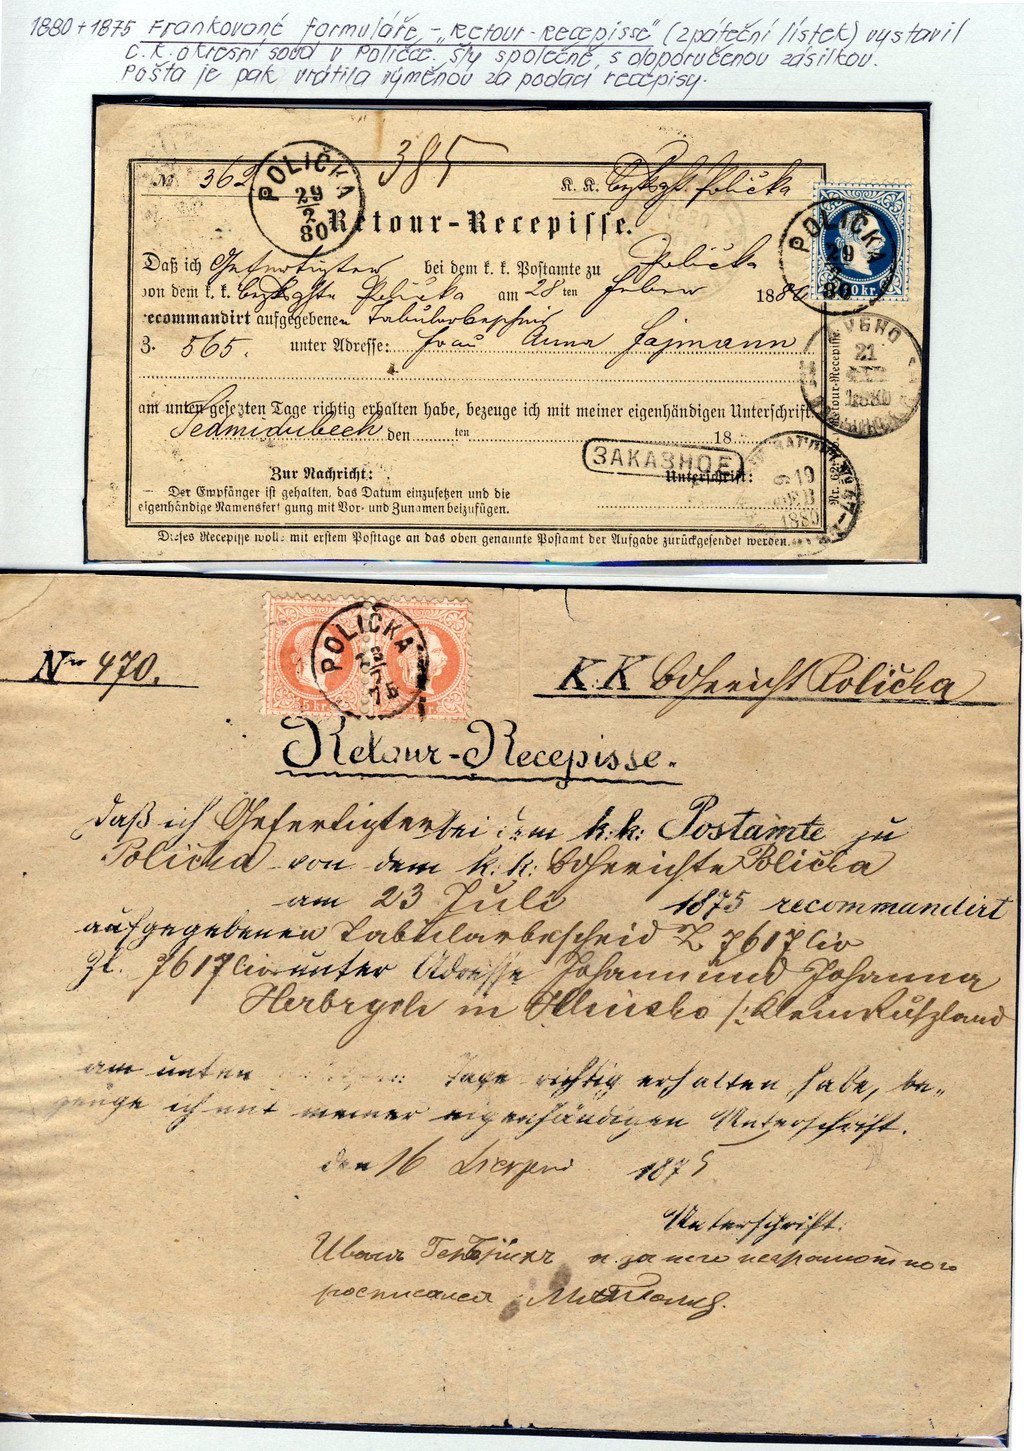 1880 + 1875 Frankované formuláře - „Retour-Recepisse" (zpáteční lístek) vystavil
c.k. okresní soud v Poličce. Šly společně s doporučenou zásilkou.
Pošta je pak vrátila výměnou za podací recepisy.
№ 362
POLIČKA 29/2 80
385
K. K. Polička
Retour-Recepisse.
POLIČKA 29 80
0 kr.
Daß ich Gefertigter bei dem k. k. Postamte zu Polička
von dem k. k. Polička am 28ten Feber 1880
recommandirt aufgegebenen
З. 565. unter Adresse: Frau Anna Fajmann
21 1880
am unten gesetzten Tage richtig erhalten habe, bezeuge ich mit meiner eigenhändigen Unterschrift.
Sedmidubech den ten 18
ЗАКАЗНОЕ
Unterschrift:
19 ФЕВ 1880
Zur Nachricht:
Der Empfänger ist gehalten, das Datum einzusetzen und die
eigenhändige Namensfertigung mit Vor- und Zunamen beizufügen.
Retour-Recepisse.
Dieses Recepisse wolle mit erstem Posttage an das oben genannte Postamt der Aufgabe zurückgesendet werden.
5 kr.
POLIČKA 23/7 75
Nro 470.
K: K Bdgericht Polička
Retour-Recepisse.
Daß ich Gefertigter bei dem k: k: Postamte zu
Polička von dem k: k: Bdgerichte Polička
am 23 Juli 1875 recommandirt
aufgegebenen Tabularbescheid Z 7617 civ
Zl. 7617 civ unter Adresse Johann und Johanna
in /: Klein Rußland
am unten Tage richtig erhalten habe, be-
zeuge ich mit meiner eigenhändigen Unterschrift.
den 16 1875
Unterschrift:
Иванъ и за него неграмотного
росписался